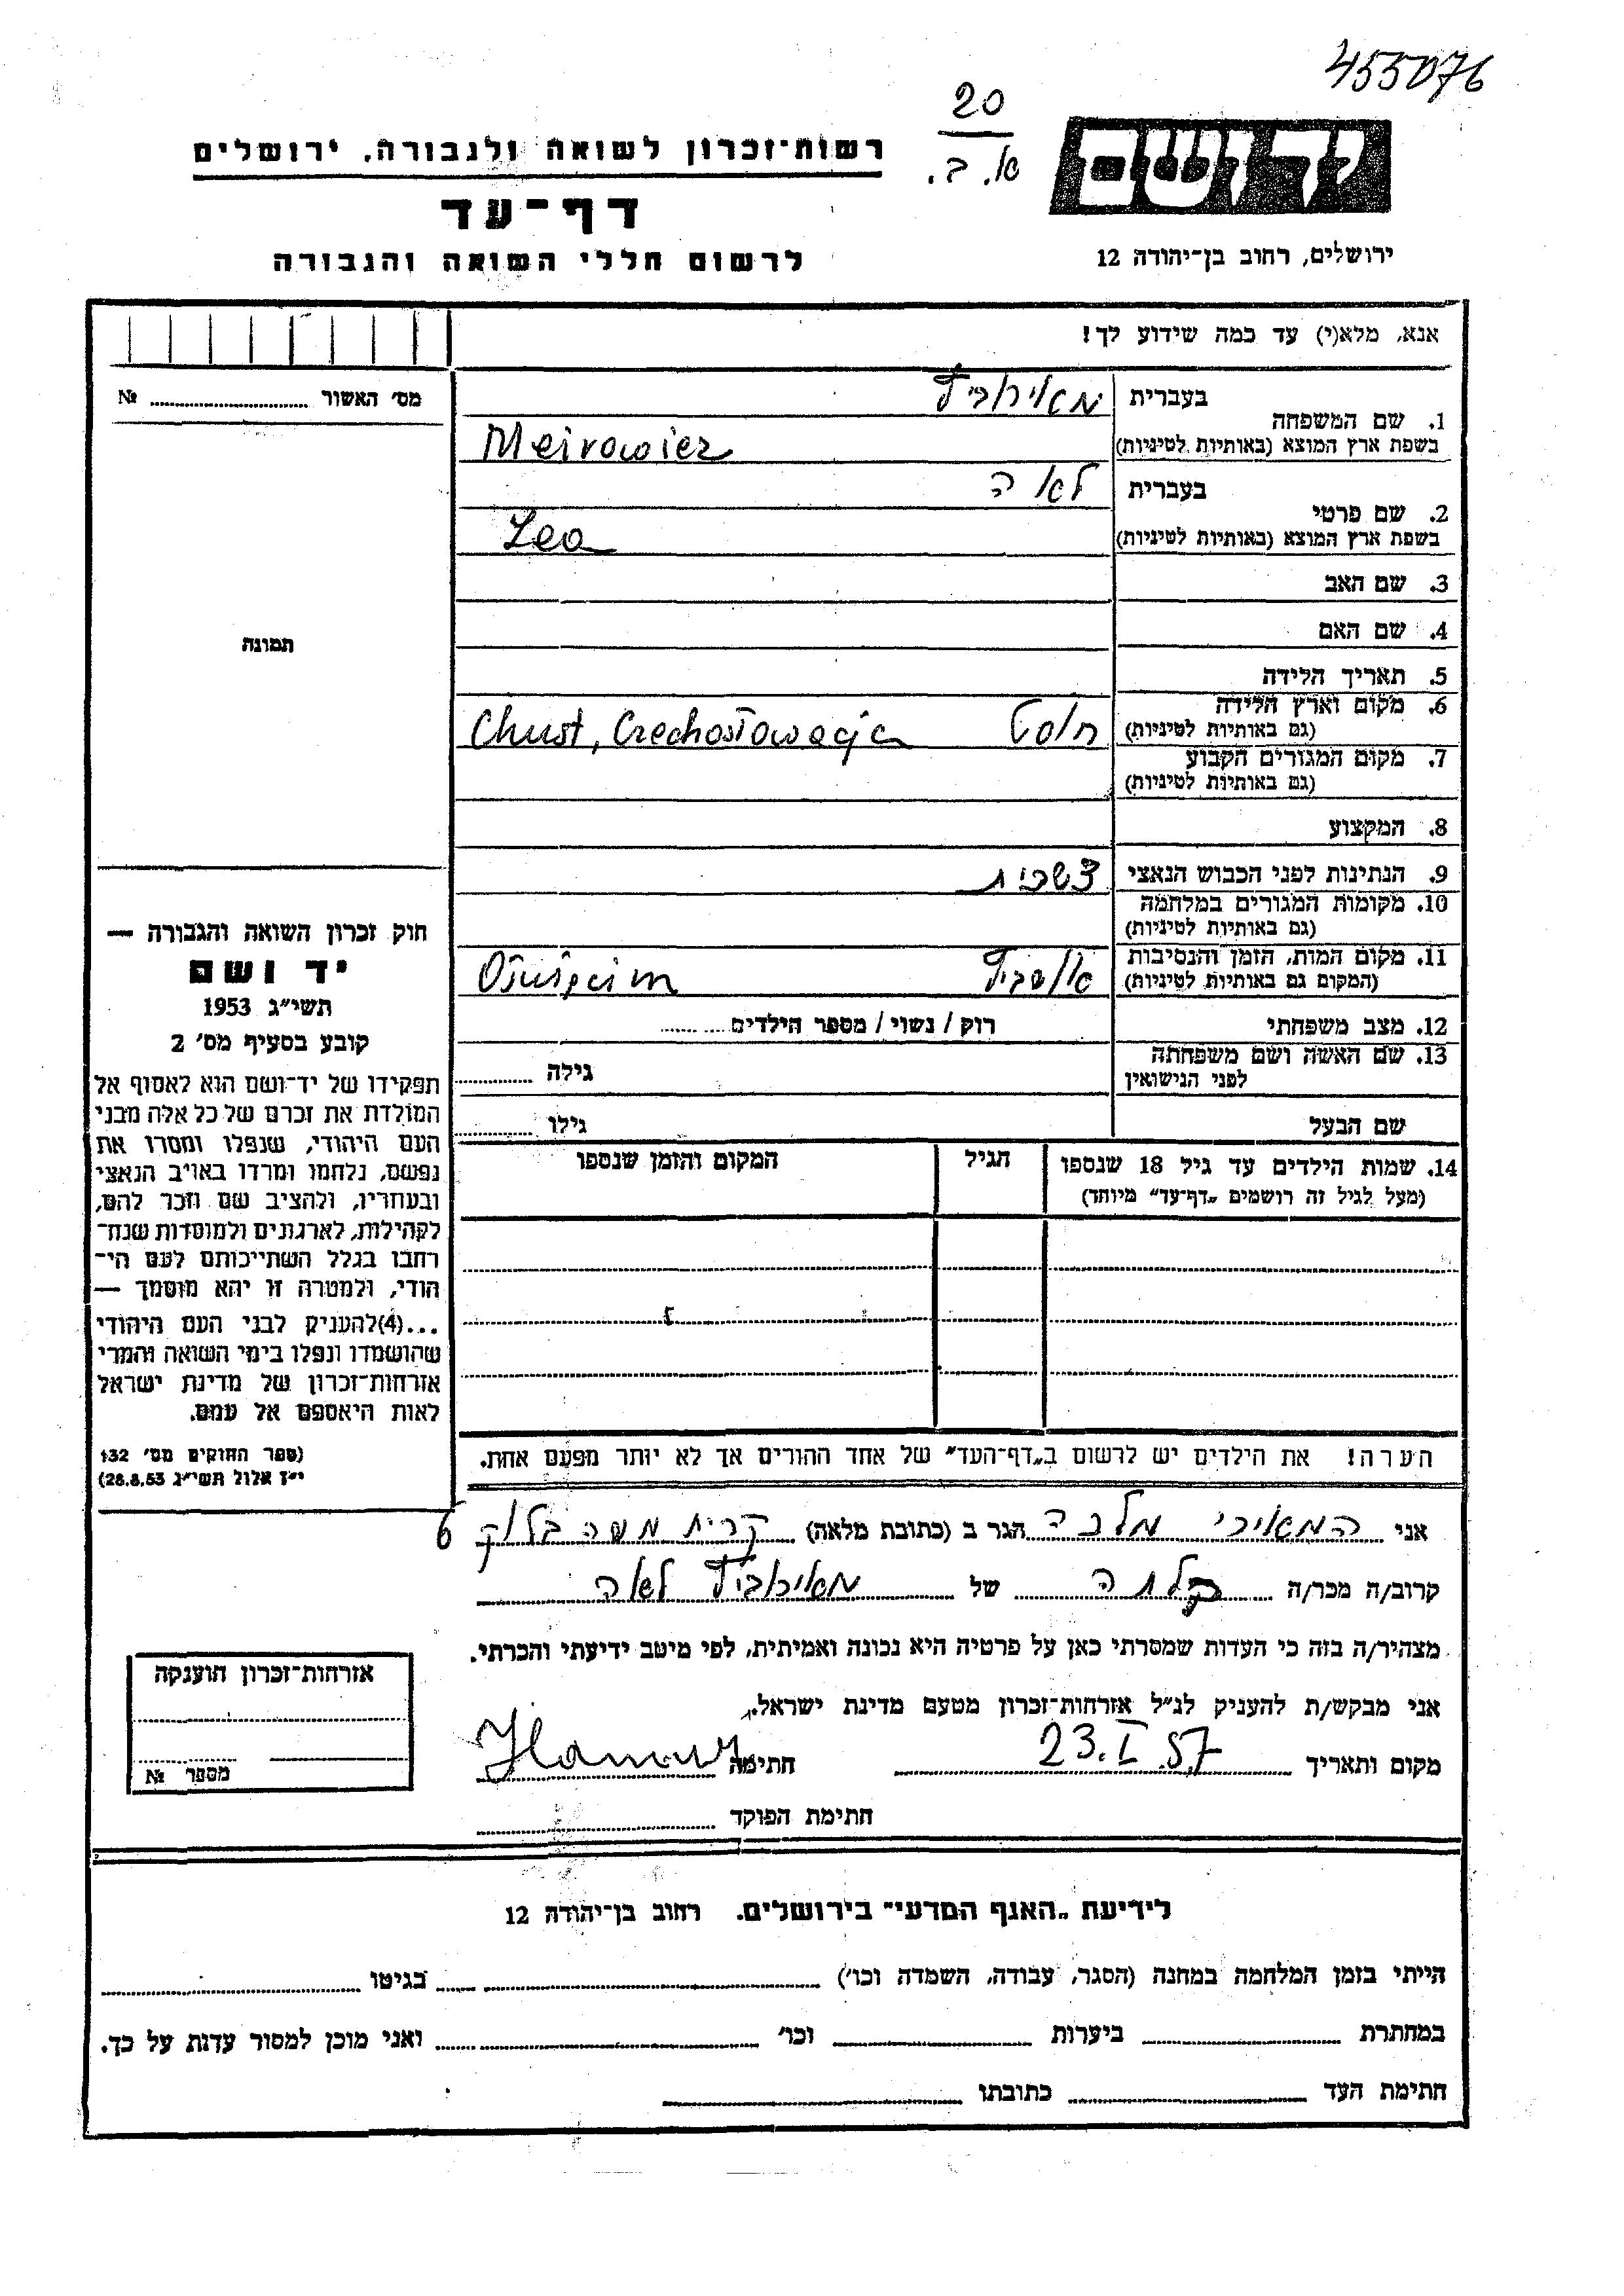 455076
20
א. ב.
יד ושם
רשות-זכרון לשואה ולגבורה, ירושלים
דף-עד
לרשום חללי השואה והגבורה
ירושלים, רחוב בן-יהודה 12
אנא, מלא(י) עד כמה שידוע לך!
מס' האשור ........ №
תמונה
1. שם המשפחה
בעברית מאירוביץ
בשפת ארץ המוצא (באותיות לטיניות) Meirowicz
2. שם פרטי
בעברית לאה
בשפת ארץ המוצא (באותיות לטיניות) Lea
3. שם האב
4. שם האם
5. תאריך הלידה
6. מקום וארץ הלידה
(גם באותיות לטיניות) חוסט Chust, Czechosłowacja
7. מקום המגורים הקבוע
(גם באותיות לטיניות)
8. המקצוע
9. הנתינות לפני הכבוש הנאצי צ'שכית
10. מקומות המגורים במלחמה
(גם באותיות לטיניות)
11. מקום המות, הזמן והנסיבות
(המקום גם באותיות לטיניות) אושביץ Oświęcim
12. מצב משפחתי רוק / נשוי / מספר הילדים ........
13. שם האשה ושם משפחתה
לפני הנישואין גילה ........
שם הבעל גילו ........
14. שמות הילדים עד גיל 18 שנספו הגיל המקום והזמן שנספו
(מעל לגיל זה רושמים „דף-עד" מיוחד)
הערה! את הילדים יש לרשום ב„דף-העד" של אחד ההורים אך לא יותר מפעם אחת.
חוק זכרון השואה והגבורה —
יד ושם
תשי"ג 1953
קובע בסעיף מס' 2
תפקידו של יד-ושם הוא לאסוף אל
המולדת את זכרם של כל אלה מבני
העם היהודי, שנפלו ומסרו את
נפשם, נלחמו ומרדו באויב הנאצי
ובעוזריו, ולהציב שם וזכר להם,
לקהילות, לארגונים ולמוסדות שנח־
רבו בגלל השתייכותם לעם הי־
הודי, ולמטרה זו יהא מוסמך —
...(4)להעניק לבני העם היהודי
שהושמדו ונפלו בימי השואה והמרי
אזרחות-זכרון של מדינת ישראל
לאות היאספם אל עמם.
(ספר החוקים מס' 132
י"ז אלול תשי"ג 28.8.53)
אני המאירי מלכה הגר ב (כתובת מלאה) קרית משה בלוק 6
קרוב/ה מכר/ה כלתה של מאירוביץ לאה
מצהיר/ה בזה כי העדות שמסרתי כאן על פרטיה היא נכונה ואמיתית, לפי מיטב ידיעתי והכרתי.
אני מבקש/ת להעניק לנ"ל אזרחות-זכרון מטעם מדינת ישראל.
מקום ותאריך 23.I.57 חתימה
חתימת הפוקד ........
אזרחות-זכרון הוענקה
מספר №
לידיעת „האגף המדעי" בירושלים. רחוב בן-יהודה 12
הייתי בזמן המלחמה במחנה (הסגר, עבודה, השמדה וכו') ........ בגיטו ........
במחתרת ........ ביערות ........ וכו' ........ ואני מוכן למסור עדות על כך.
חתימת העד ........ כתובתו ........